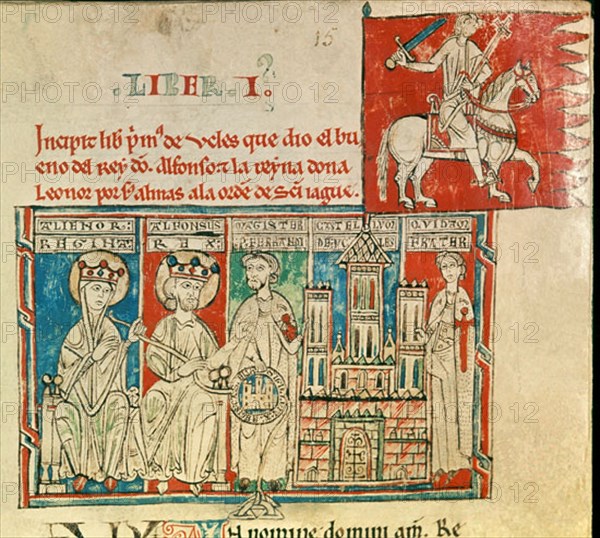 15
.LIBER.I.
Incipit lib pmº de veles que dio el bu
eno del Rey dō. Alfonso t la reyna dona
Leonor por sꝰ almas a la ordē de Sēi iague.
ALIENOR:
REGINA:
ALFONSUS
REX:
MAGISTER
P. FERRANDI
CASTELLVO
DE VCLES
QVIDA
FRATER
In nomine domini am. Re